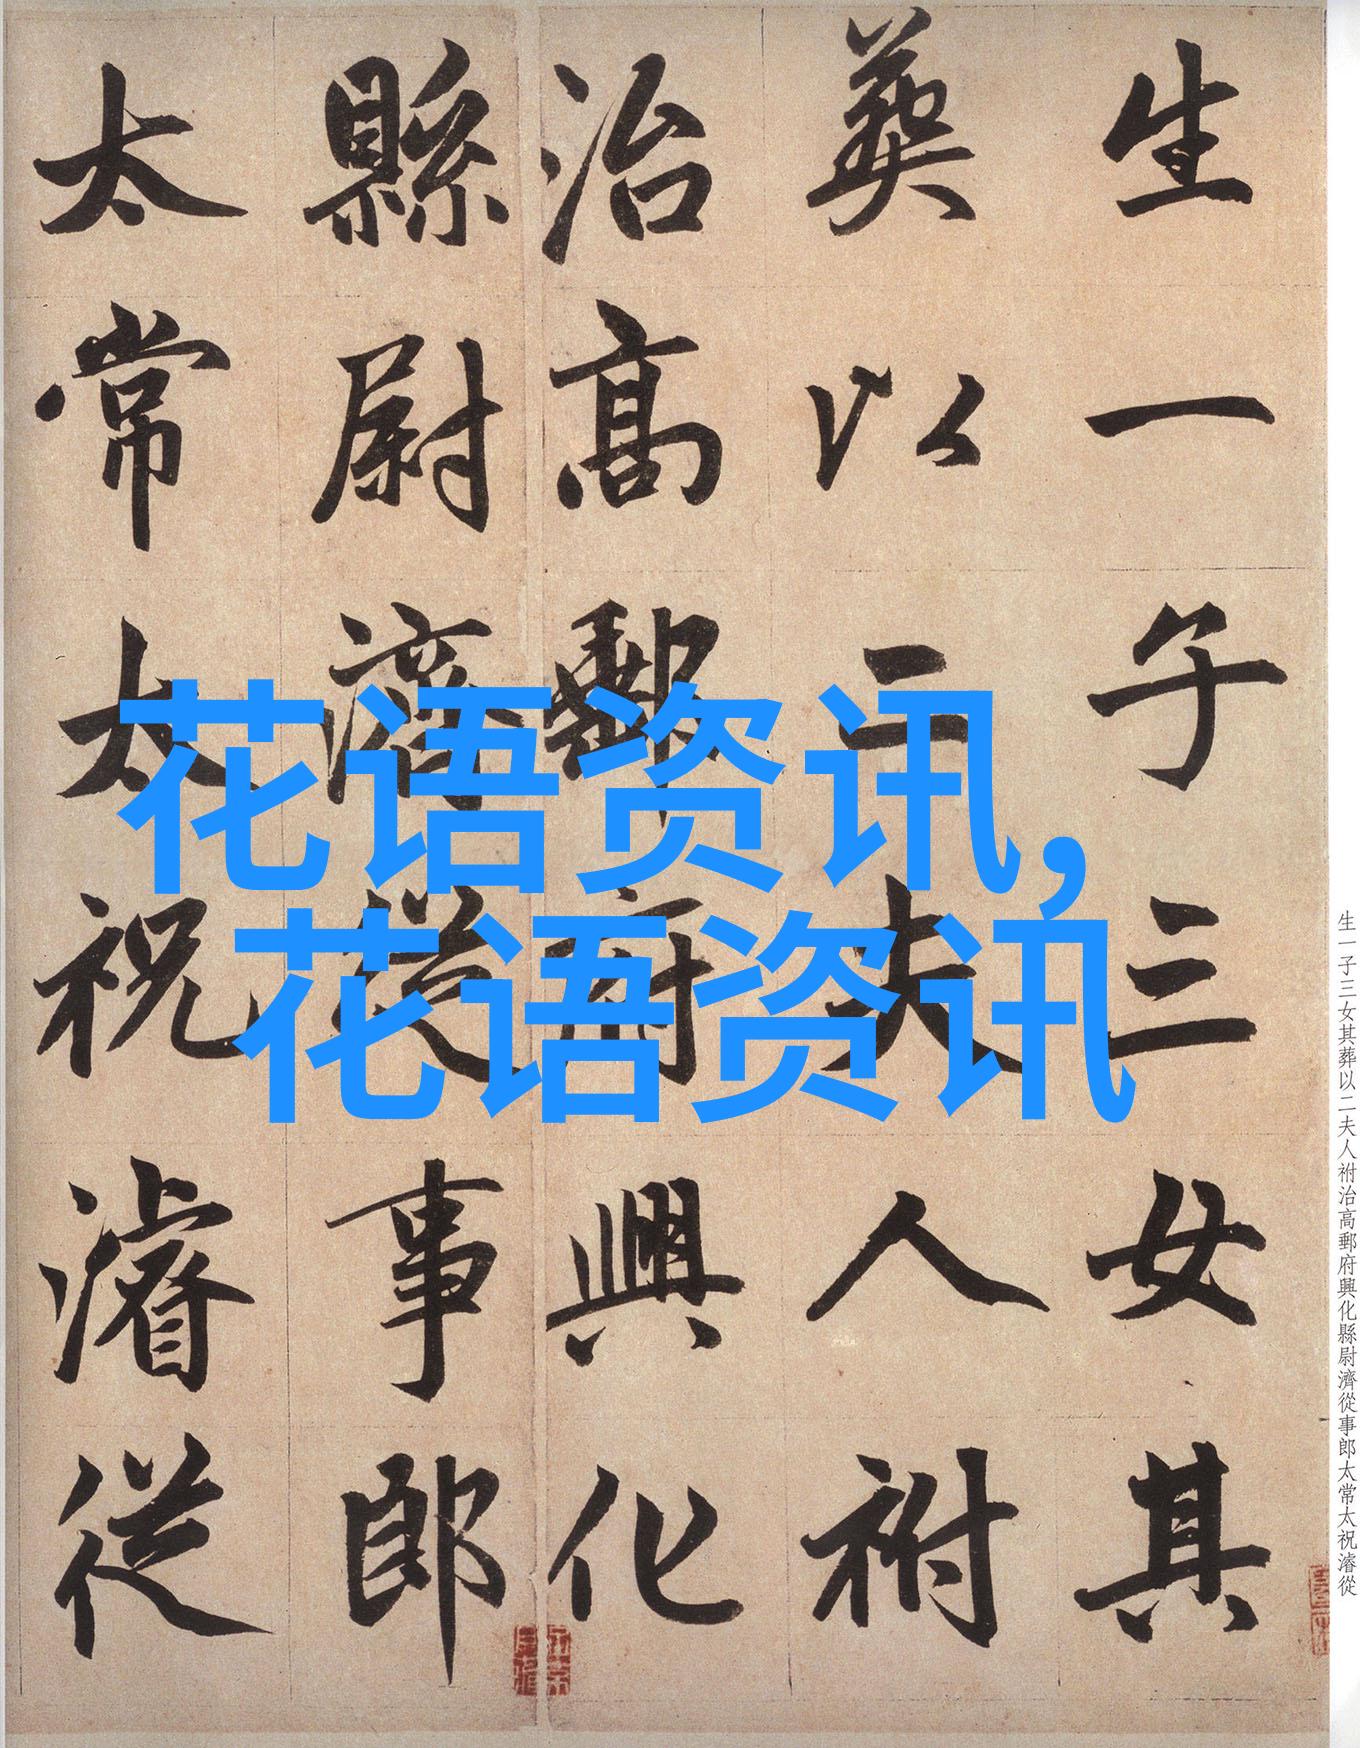 生一子三女其
葬以二夫人祔
治高郵府興化
縣尉濟從事郎
太常太祝濬從
花语资讯,
花语资讯
生一子三女其葬以二夫人祔治高郵府興化縣尉濟從事郎太常太祝濬從